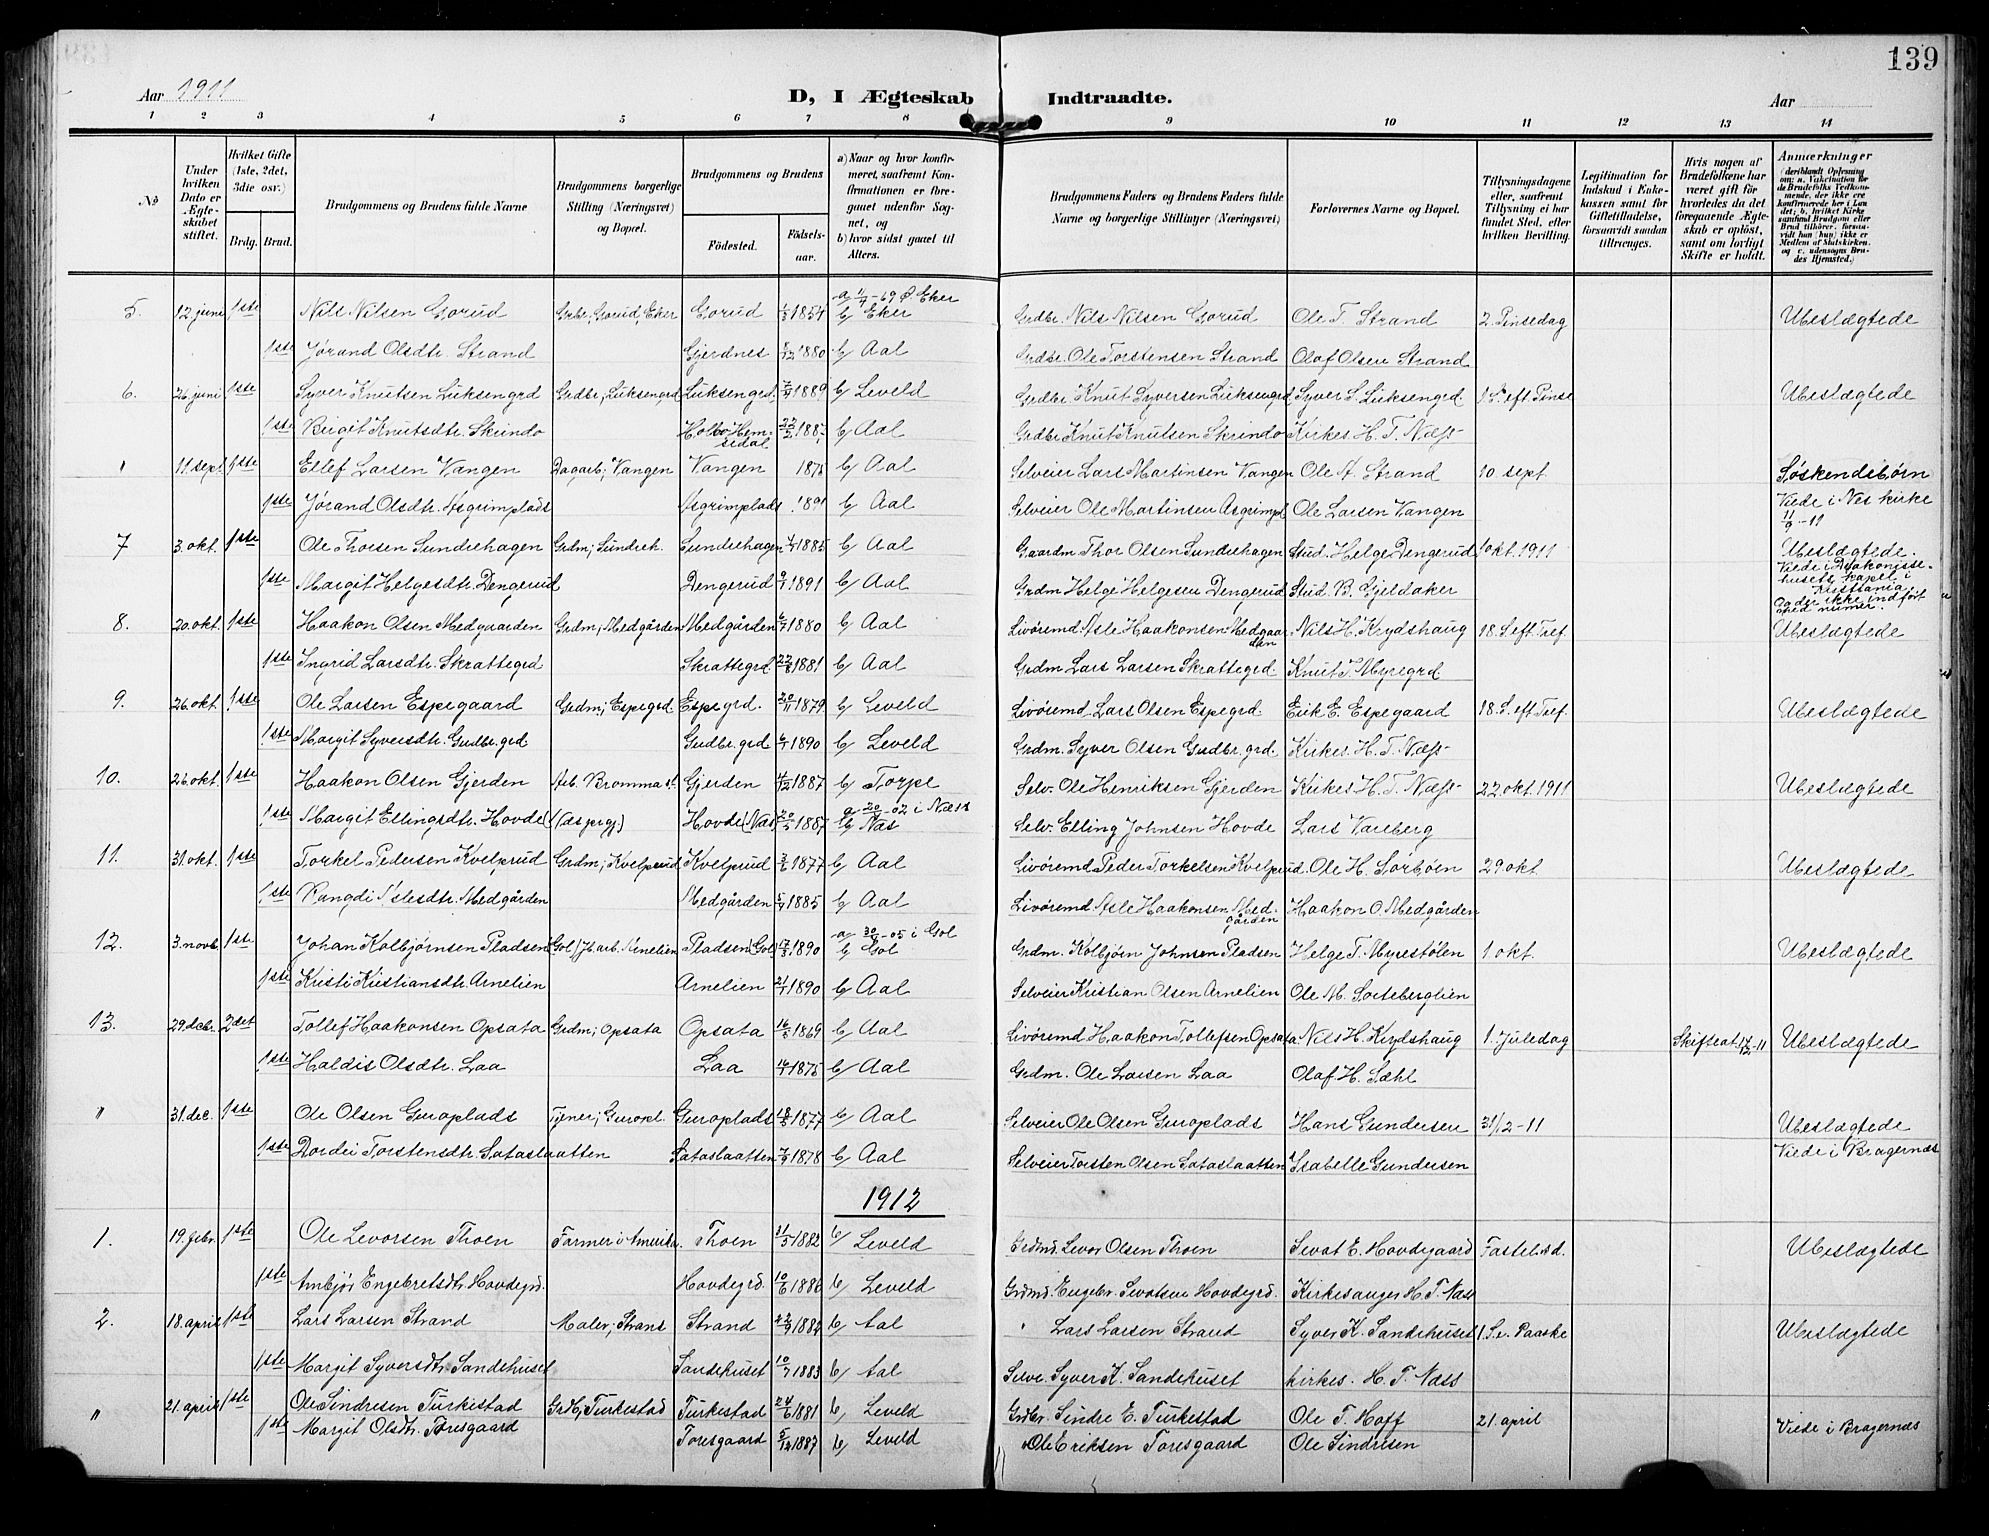 139
Aar 1911
D, I Ægteskab Indtraadte.
Aar
1 2 3 4 5 6 7 8 9 10 11 12 13 14
No
Under hvilken Dato er Ægteskabet stiftet.
Hvilket Gifte (1ste, 2det, 3die osv.)
Brdg. Brud.
Brudgommens og Brudens fulde Navne
Brudgommens borgerlige Stilling (Næringsvei) og Bopæl.
Brudgommens og Brudens
Fødested. Fødselsaar.
a) Naar og hvor konfirmeret, saafremt Konfirmationen er foregaaet udenfor Sognet, og
b) hvor sidst gaaet til Alters.
Brudgommens Faders og Brudens Faders fulde Navne og borgerlige Stillinger (Næringsvei)
Forlovernes Navne og Bopæl.
Tillysningsdagene eller, saafremt Tillysning ei har fundet Sted, efter hvilken Bevilling.
Legitimation for Indskud i Enkekassen samt for Giftetilladelse, forsaavidt saadan tiltrænges.
Hvis nogen af Brudefolkene har været gift før hvorledes da det foregaaende Ægteskab er opløst, samt om lovligt Skifte er holdt.
Anmærkninger
5. 12 juni 1ste Nils Nilsen Gorud Grbr. Gorud, Eker Gorud 1854 b/ Eker Grdbr. Nils Nilsen Gorud Ole T. Strand 2. Pinsedag Ubeslægtede
1ste Jørand Olsdtr. Strand Gjerdnes 1880 b/ Aal Grdbr. Ole Torstensen Strand Olaf Olsen Strand
6. 26 juni 1ste Syver Knutsen Luksengrd Grdbr, Luksengrd Luksengrd. 1889 b/ Leveld Grdbr Knut Syversen Luksengrd Syver S. Luksengrd 1 S. eft Pinse Ubeslægtede
1ste Birgit Knutsdtr. Skrindo Hemsedal b/ Aal Grdbr Knut Knutsen Skrindo Kirkes H. T. Næss
" 11 sept 1ste Ellef Larsen Vangen Dagarb; Vangen Vangen 1875 b/ Aal Selveier Lars Martinsen Vangen Ole A. Strand 10 sept Søskendebørn
1ste Jørand Olsdtr. Asgrimplads Asgrimplads 1891 b/ Aal Selveier Ole Martinsen Asgrimpl Ole Larsen Vangen Viede i Nes kirke 11/9-11
7 3. okt. 1ste Ole Thorsen Sundrehagen Grdm; Sundreh. Sundrehagen 1885 b/ Aal Gaardm Thor Olsen Sundrehagen Stud. Helge Dengerud 1 okt. 1911 Ubeslægtede.
1ste Margit Helgesdtr. Dengerud Dengerud 1891 b/ Aal Grdm Helge Helgesen Dengerud Stud. B. Gjeldaker Viede i Diakonissehusets kapel i Kristiania
ikke indført med numer.
8. 20. okt. 1ste Haakon Olsen Medgaarden Grdm, Medgården Medgården 1880 b/ Aal Livøremd. Asle Haakonsen Medgaarden Nils H. Krydshaug 18. S. eft Tref Ubeslægtede
1ste Ingrid Larsdtr. Skrattegrd Skrattegrd 1881 b/ Aal Grdm Lars Larsen Skrattegrd Knut T. Myregrd
9. 26. okt. 1ste Ole Larsen Espegaard Grdm; Espegrd Espegrd. 20/11 1879 b/ Leveld Livøremd Lars Olsen Espegrd. Erik E. Espegaard 18. S. eft Tref. Ubeslægtede
1ste Margit Syversdtr. Gudbr.grd Gudbr.grd 1890 b/ Leveld Grdm. Syver Olsen Gudbr.grd. Kirkes. H. T. Næss
10. 26 okt. 1ste Haakon Olsen Gjerden Arb. Bromma st. Gjerden 1887 b/ Torpe Selv. Ole Henriksen Gjerden Kirkes H. T. Næss 22 okt. 1911 Ubeslægtede
1ste Margit Ellingsdtr. Hovde Hovde (Næs) 1887 b/ Næs Selv. Elling Johnsen Hovde Lars Vareberg
11. 31 okt. 1ste Torkel Pedersen Kvelprud Grdm; Kvelprud Kvelprud 1877 b/ Aal Livøremd Peder Torkelsen Kvelprud Ole H. Sørbøen 29 okt Ubeslægtede
1ste Rangdi Aslesdtr. Medgården Medgården 1885 b/ Aal Livøremd. Asle Haakonsen Medgården Haakon O. Medgården
12. 3. novb. 1ste Johan Kolbjørnsen Pladsen (Gol) Harb. Arnelien Pladsen (Gol) 1890 b/ Gol Grdm. Kolbjørn Johnsen Pladsen Helge T. Myrestølen 1 okt. Ubeslægtede
1ste Kristi Kristiansdtr. Arnelien Arnelien 1890 b/ Aal Selveier Kristian Olsen Arnelien Ole M. Sorteberglien
13. 29. dcbr. 2det Tollef Haakonsen Opsata Grdm; Opsata Opsata 1869 b/ Aal Livøremd Haakon Tollefsen Opsata Nils H. Krydshaug 1. Juledag Ubeslægtede
1ste Haldis Olsdtr. Laa Laa 1875 b/ Aal Grdm. Ole Larsen Laa Olaf H. Sæhl
" 31. dec. 1ste Ole Olsen Guroplads Tjener; Guropl. Guroplads 1877 b/ Aal Selveier Ole Olsen Guroplads Hans Gundersen 31/12-11 Ubeslægtede
1ste Dordei Torstensdtr. Sataslaatten Sataslaatten 1878 b/ Aal Selveier Torsten Olsen Sataslaatten Isabelle Gundersen Viede i Bragernæs
1912
1. 19. febr. 1ste Ole Levorsen Thoen Farmer i Amerika. Thoen 31/5 1882 b/ Leveld Levor Olsen Thoen Sevat E. Hovdegaard Ubeslægtede
1ste Ambjør Engebretsdtr. Hovdegrd. Hovdegrd. 10/6 1886 b/ Leveld Engebr. Sevatsen Hovdegrd. Kirkesanger H. T. Næss
2. 18. april 1ste Lars Larsen Strand Maler; Strand Strand b/ Aal " Lars Larsen Strand Syver K. Sandehuset 1 S. e. Paaske Ubeslægtede
1ste Margit Syversdtr. Sandehuset Sandehuset 10/7 1883 b/ Aal Selve. Syver K. Sandehuset kirkes. H. T. Næss
" 21. april 1ste Ole Sindresen Turkestad Turkestad Turkestad 1881 b/ Leveld Grdbr. Sindre E. Turkestad Ole T. Hoff 21. april
1ste Margit Olsdtr. Toresgaard Toresgaard 5/12 1887 b/ Leveld " Ole Eriksen Toresgaard Ole Sindresen Viede i Bragernæs